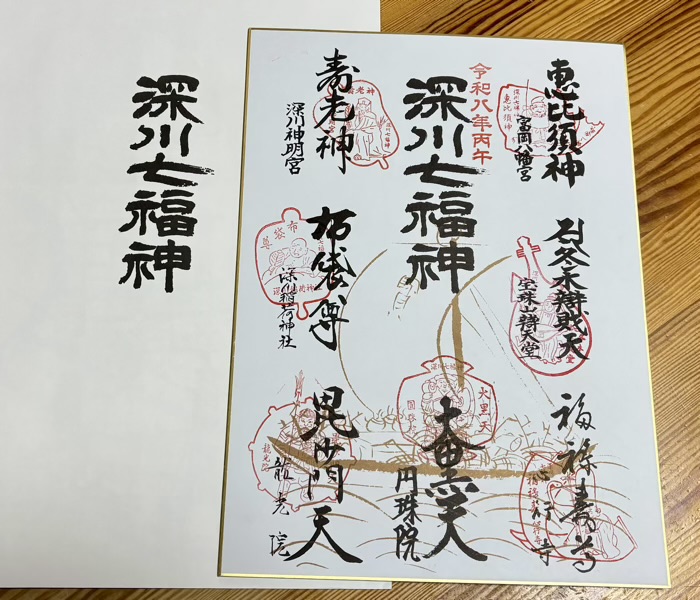 恵比須神
富岡八幡宮
冬木辨財天
宝珠山辨天堂
福禄壽尊
心行寺
令和八年丙午
深川七福神
大黒天
円珠院
壽老神
深川神明宮
布袋尊
深川稲荷神社
毘沙門天
龍光院
深川七福神